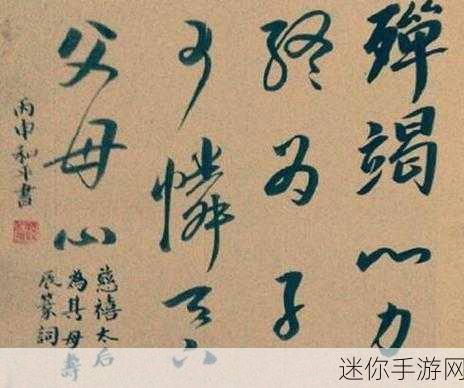 殫竭心力
終为子
可憐天下
父母心
慈禧太后
為其母壽
辰篆詞
丙申和平書
迷你手游网